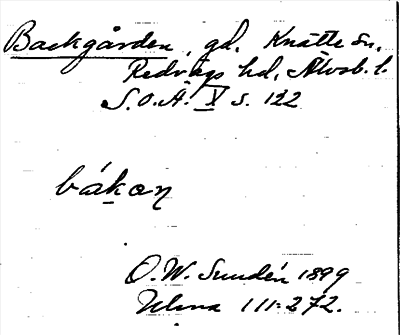 Backgården, gd. Knätte sn,
Redvägs hd, Älvsb. l.
S.O.Ä. X s. 122
bákon
O.W. Sundén 1899
111-272.